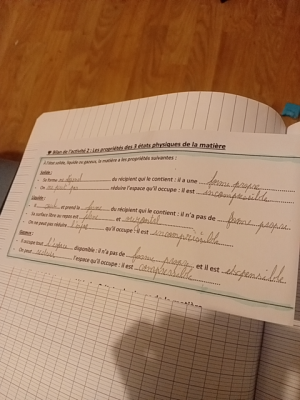 Bilan de l'activité 2 : Les propriétés des 3 états physiques de la matière
A l'état solide, liquide ou gazeux, la matière a les propriétés suivantes :
Solide :
- Sa forme dépend pas du récipient qui le contient : il a une forme propre
- On ne peut pas réduire l'espace qu'il occupe : il est incompressible
Liquide :
- Il coule et prend la forme du récipient qui le contient : il n'a pas de forme propre
- Sa surface libre au repos est plane et horizontal
- On ne peut pas réduire l'espace qu'il occupe : il est incompressible
Gazeux :
- Il occupe tout l'espace disponible : il n'a pas de forme propre et il est expansible
- On peut réduire l'espace qu'il occupe : il est compressible